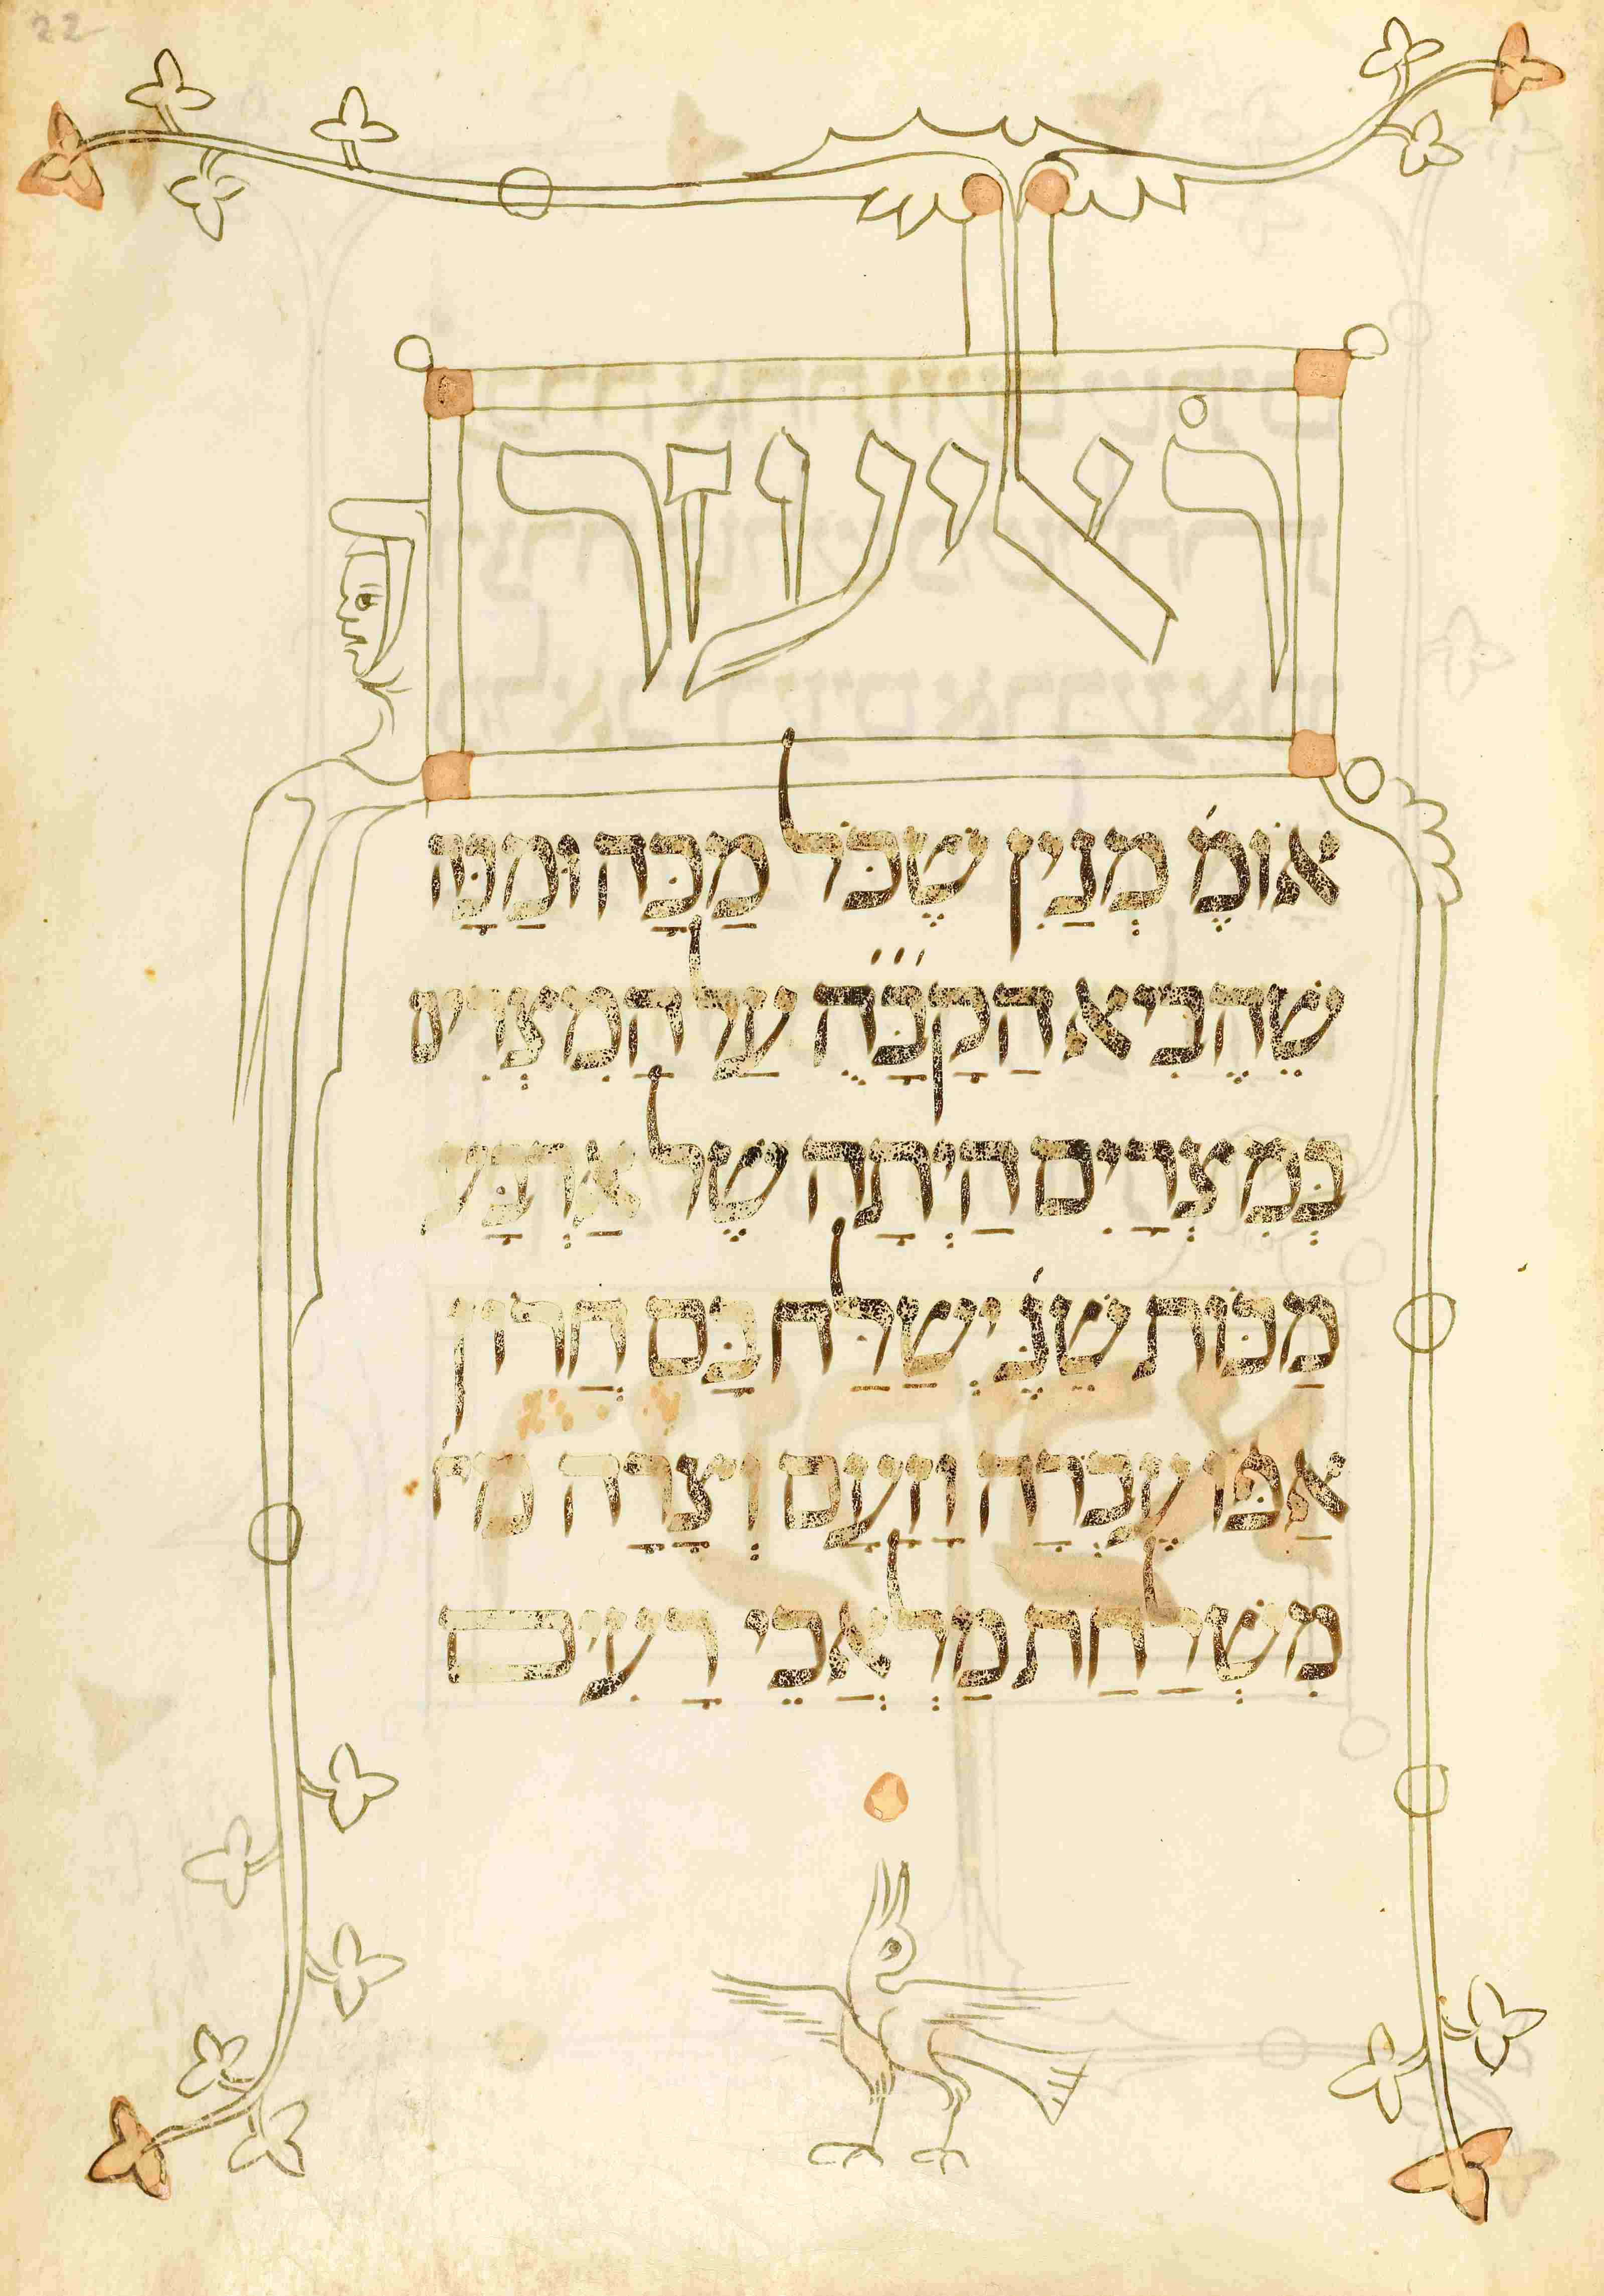 22
ר̇ אליעזר
אוֹמֶ֗ מְנַיִן שֶׁכׇּל מַכָּה וּמַכָּה
שֶׁהֵבִיא הַקָבָּ֗ה֗ עַל הַמִצְרִים
בְּמִצְרַיִם הָיְתָה שֶׁל אַרְבַּע
מַכּוֹת שֶׁנֶּ֗ יְשַׁלַּח בָּם חֲרוֹן
אַפּוֹ עֶבְרָה וָזַעַם וְצָרָה מ֗
מִשְׁלַחַת מַלְאֲכֵי רָעִים